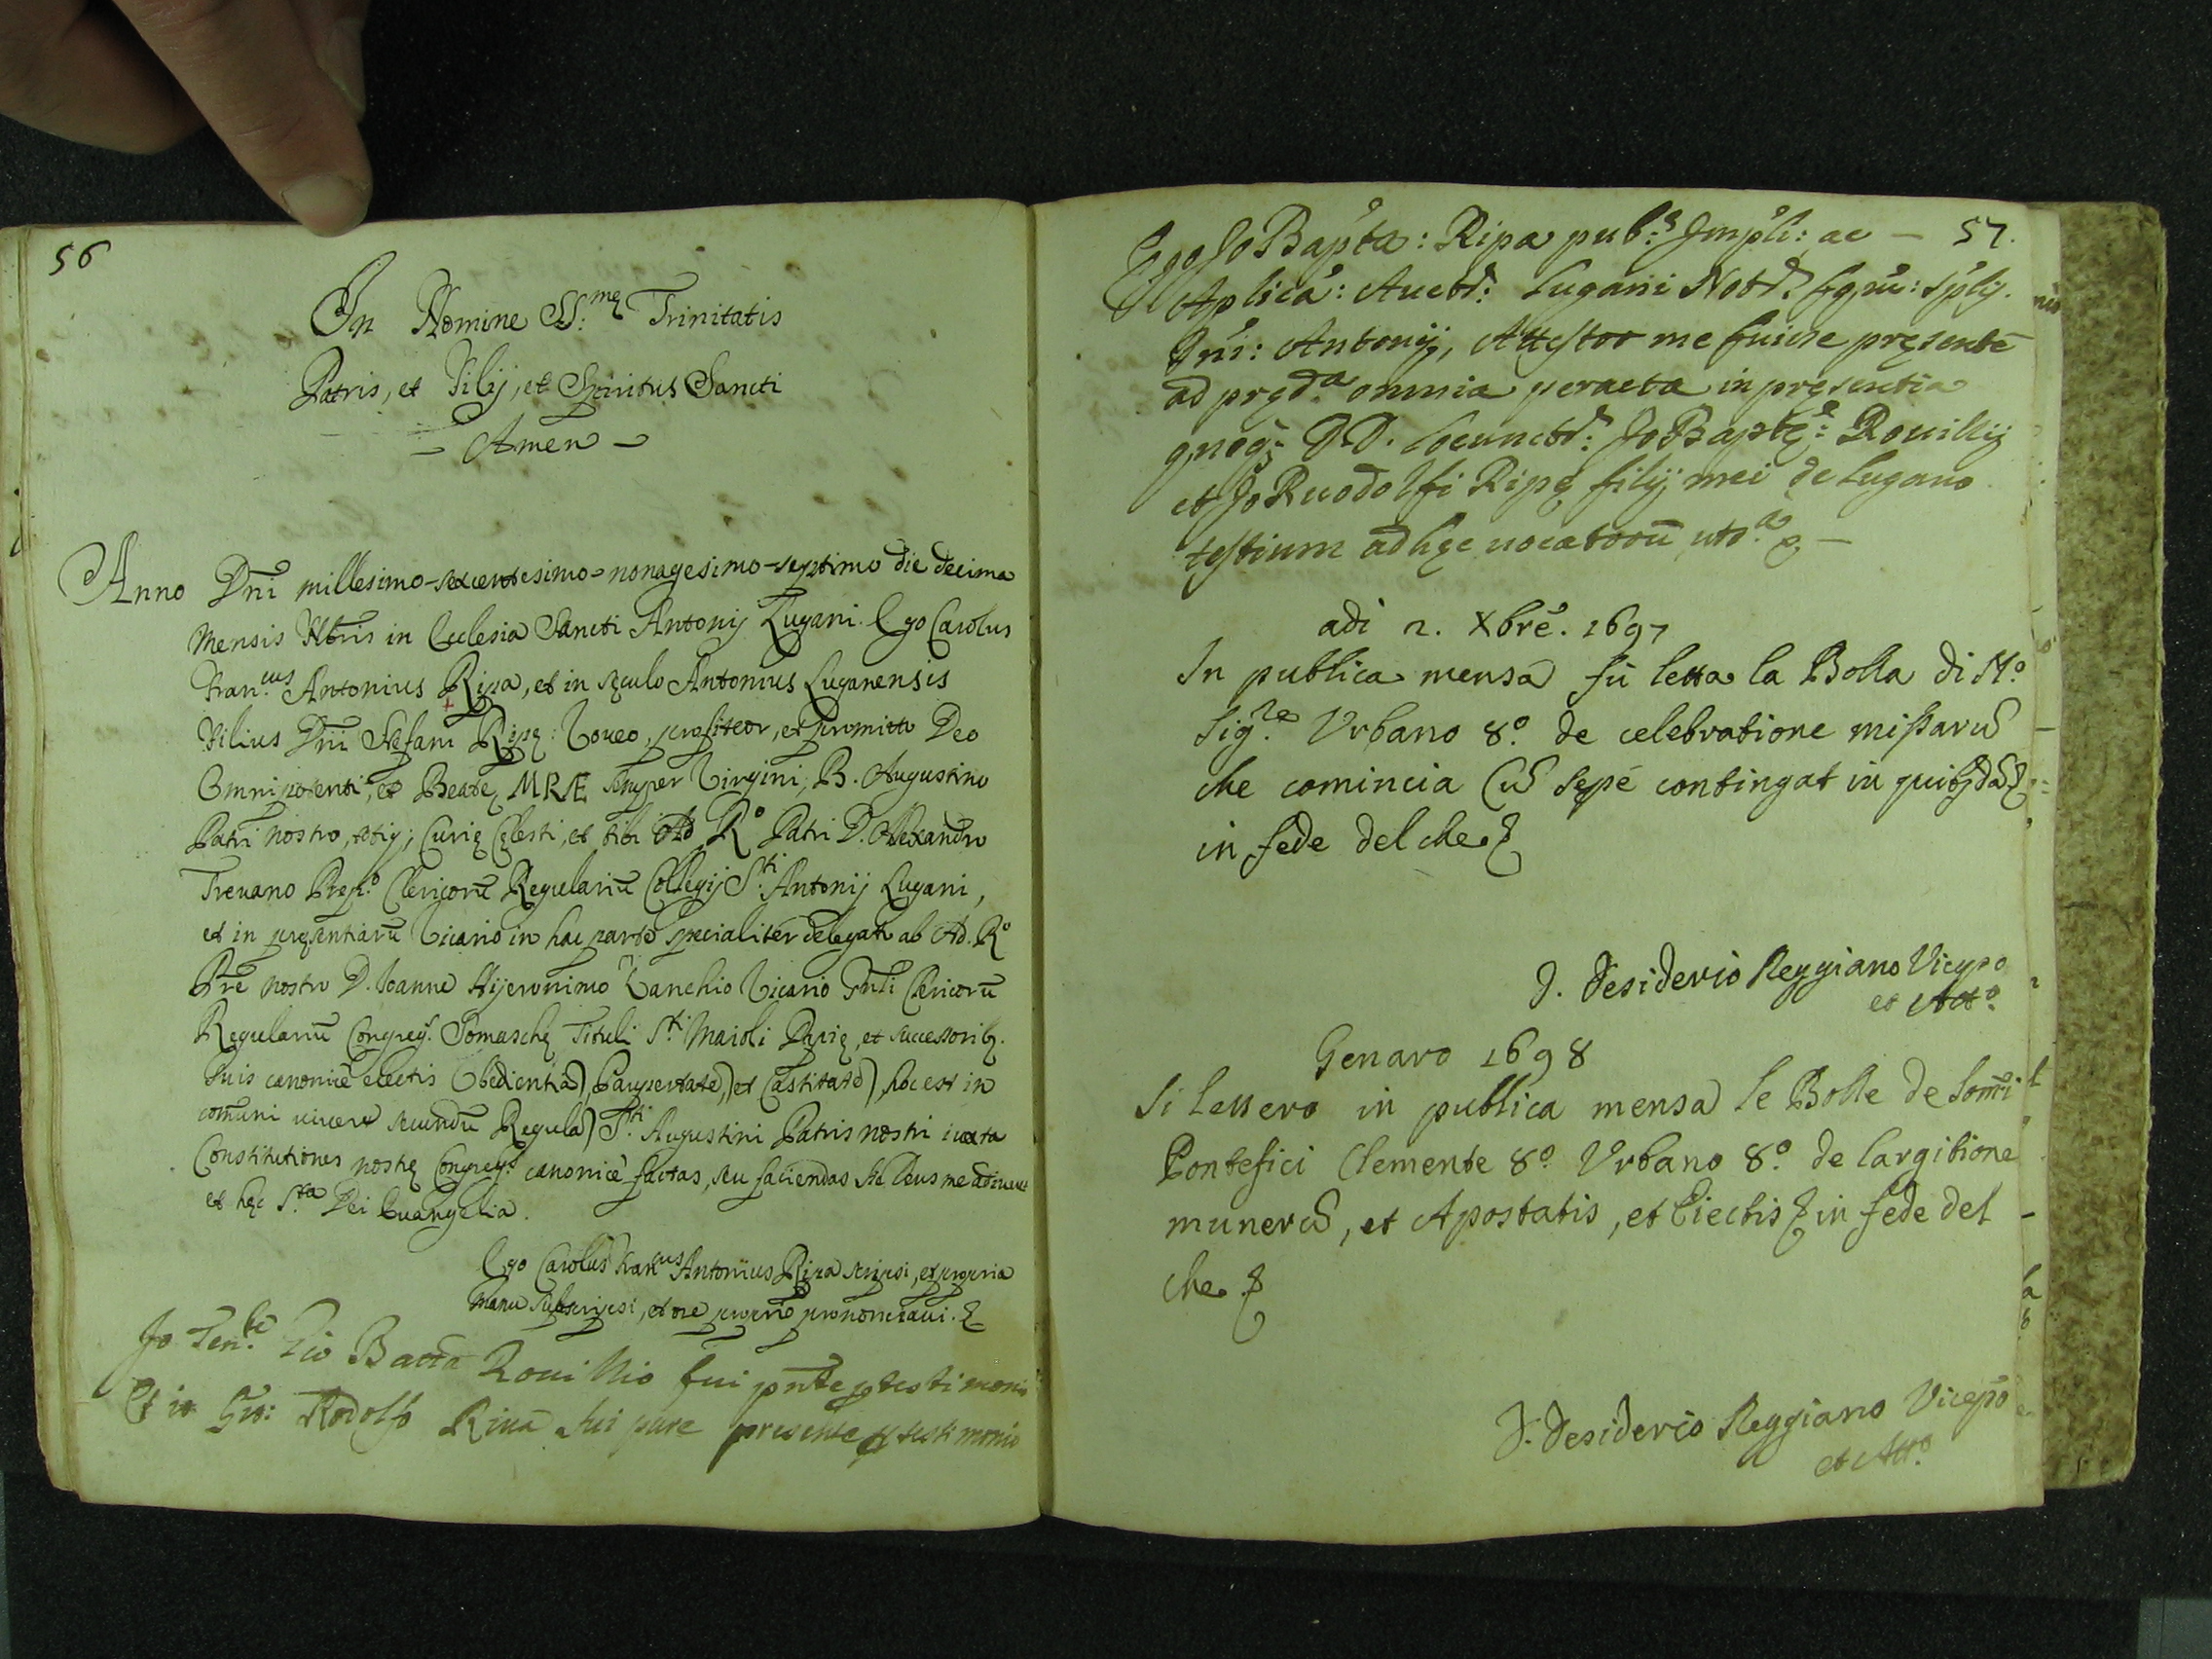 56
In Nomine SS.mę Trinitatis
Patris, et Filij, et Spiritus Sancti
- Amen -
Anno Dñi millesimo-sexcentesimo-nonagesimo-septimo die decima
mensis in Ecclesia Sancti Antonij Lugani. Ego Carolus
Fran.cus Antonius Ripa, et in sęculo Antonius Luganensis
Filius Dñi Stefani Ripę: Voueo, profiteor, et promitto Deo
Omnipotenti, et Beatę MRÆ semper Virgini, B. Augustino
Patri nostro, totiq; Curię Cęlesti, et tibi Ad. R.o Patri D. Alexandro
Treuano Prep.o Clericorũ Regulariũ Collegij S.ti Antonij Lugani,
et in pręsentiarũ Vicario in hac parte specialiter delegato ab Ad. R.o
Pre nostro D. Ioanne Hijeronimo Zanchio Vicario Gñli Clericorũ
Regulariũ Congreg.s Somaschę Tituli S.ti Maioli Papię, et successorib9.
suis canonicè electis Obedientiã, Paupertatẽ, et Castitatẽ, hoc est in
comuni uiuere secundũ Regulã S.ti Augustini Patris nostri iuxta
Constitutiones nostrę Congreg.s canonicè factas, seu faciendas sic Deus me adiuuet
et hęc S.ta Dei Euangelia.
Ego Carolus Fran.cus Antonius Ripa scripsi, et propria
manu subscripsi, et ore proprio prononciaui.
Io Ten.te Gio Batta Rouillio fui pñte testimonio
Et io Gio: Rodolfo Riua fui pure presente testimonio
57.
Ego Jo Bapta: Ripa pub: Impli: ac -
Aplica: Auctd: Lugani Notd.
Dñi: Antonij, Attestor me fuisse pręsentẽ
ad pręd.a omnia peracta in pręsentia
DD. Locumtd: Jo Baptę: Rouillij
et Jo Ruodolfi Ripę filij mei de Lugano
testium ad hęc uocatorũ utd.a -
adi 2. Xbre. 1697
In publica mensa fù letta la Bolla di N.o
Sig.re Vrbano 8.o de celebratione missarũ
che comincia Cũ sepé contingat in
in fede del che
D. Desiderio Reggiano Vicepo
et Att.o
Genaro 1698
Si lessero in publica mensa le Bolle de somi
Pontefici Clemente 8.o Vrbano 8.o de largitione
munerũ, et Apostatis, et Eiectis in fede del
che
D. Desiderio Reggiano Vicepo
et Att.o